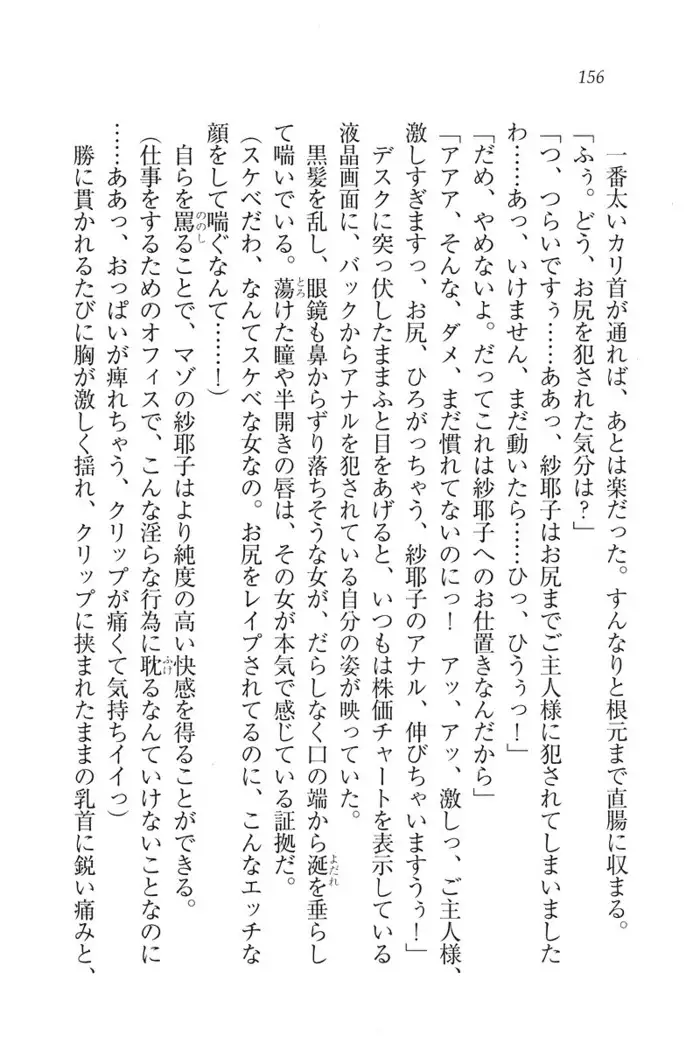 156
一番太いカリ首が通れば、あとは楽だった。すんなりと根元まで直腸に収まる。
「ふぅ。どう、お尻を犯された気分は？」
「つ、つらいですぅ……ああっ、紗耶子はお尻までご主人様に犯されてしまいました
わ……あっ、いけません、まだ動いたら……ひっ、ひうぅっ！」
「だめ、やめないよ。だってこれは紗耶子へのお仕置きなんだから」
「アアア、そんな、ダメ、まだ慣れてないのにっ！　アッ、アッ、激しっ、ご主人様、
激しすぎますっ、お尻、ひろがっちゃう、紗耶子のアナル、伸びちゃいますうぅ！」
デスクに突っ伏したままふと目をあげると、いつもは株価チャートを表示している
液晶画面に、バックからアナルを犯されている自分の姿が映っていた。
黒髪を乱し、眼鏡も鼻からずり落ちそうな女が、だらしなく口の端から涎を垂らし
て喘いでいる。蕩けた瞳や半開きの唇は、その女が本気で感じている証拠だ。
（スケベだわ、なんてスケベな女なの。お尻をレイプされてるのに、こんなエッチな
顔をして喘ぐなんて……！）
自らを罵ることで、マゾの紗耶子はより純度の高い快感を得ることができる。
（仕事をするためのオフィスで、こんな淫らな行為に耽るなんていけないことなのに
……ああっ、おっぱいが痺れちゃう、クリップが痛くて気持ちイイっ）
勝に貫かれるたびに胸が激しく揺れ、クリップに挟まれたままの乳首に鋭い痛みと、